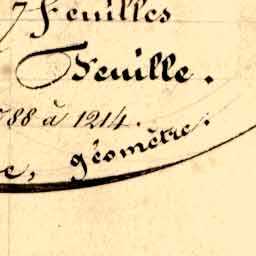 7 Feuilles
Feuille.
88 à 1214.
e, géomètre.